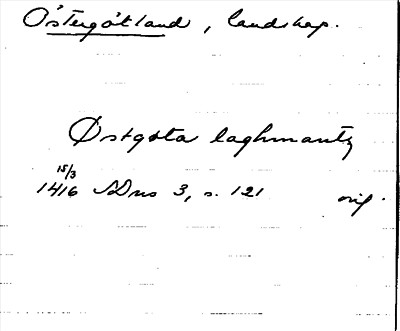 Östergötland, landskap.
Østgøta laghmantz
15/3
1416 SDns 3, s. 121 orig.